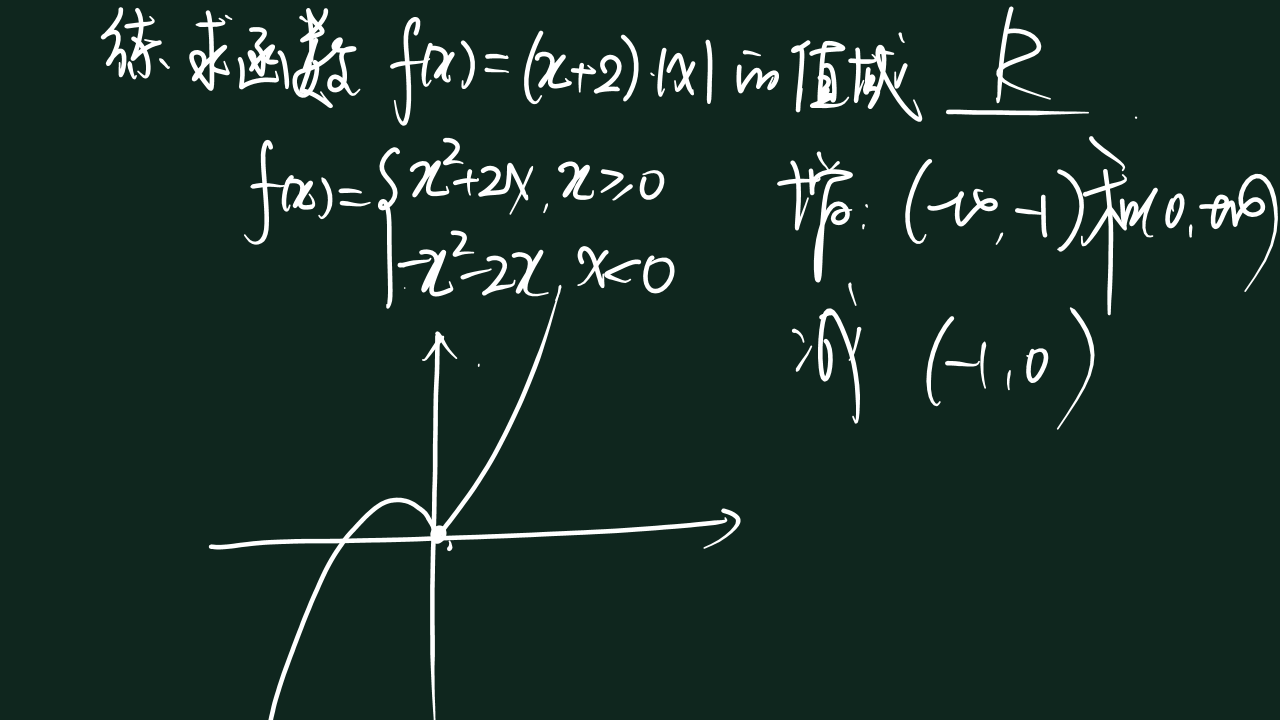 练、求函数 f(x)=(x+2)·|x| 的值域 R
f(x)={x²+2x, x≥0
-x²-2x, x<0
增: (-∞,-1)和(0,+∞)
减 (-1,0)